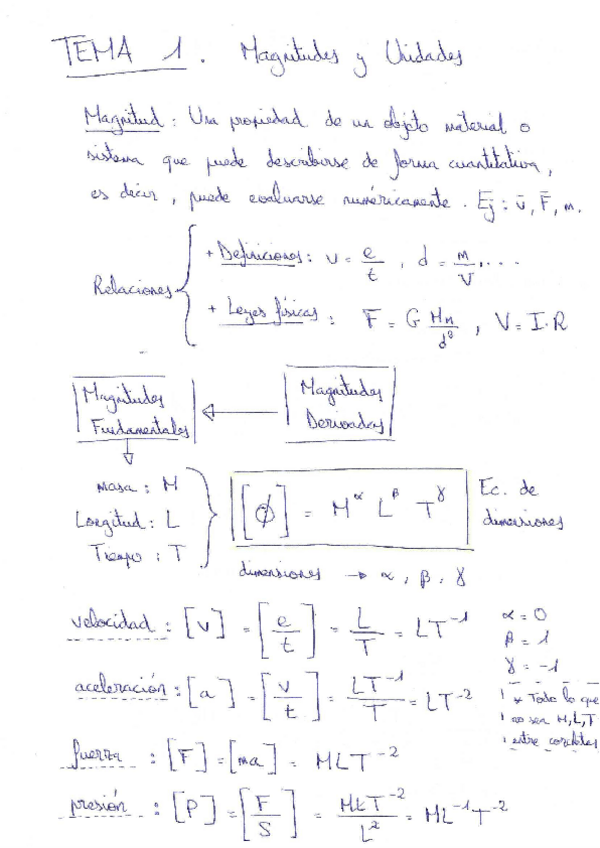 TEMA 1. Magnitudes y Unidades
Magnitud: Una propiedad de un objeto material o
sistema que puede describirse de forma cuantitativa,
es decir, puede evaluarse numéricamente. Ej: v̄, F̄, m.
Relaciones
+ Definiciones: v = e/t, d = m/V, ...
+ Leyes físicas: F = G Mm/d², V = I·R
Magnitudes Fundamentales ← Magnitudes Derivadas
masa: M
Longitud: L
Tiempo: T
[ϕ] = M^α L^β T^γ
Ec. de
dimensiones
dimensiones → α, β, γ
velocidad: [v] = [e/t] = L/T = LT⁻¹
α = 0
β = 1
γ = -1
aceleración: [a] = [v/t] = LT⁻¹/T = LT⁻²
* Todo lo que
no sea M, L, T
entre corchetes
fuerza: [F] = [ma] = MLT⁻²
presión: [P] = [F/S] = MLT⁻²/L² = ML⁻¹T⁻²